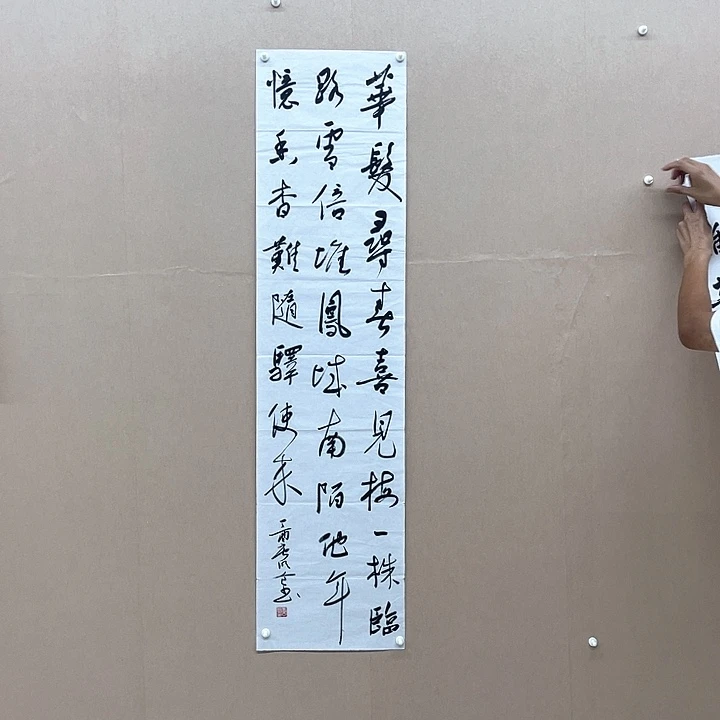 華髮尋春喜見梅一株臨
路雪倍堆鳳城南陌他年
憶香杳難隨驛使來